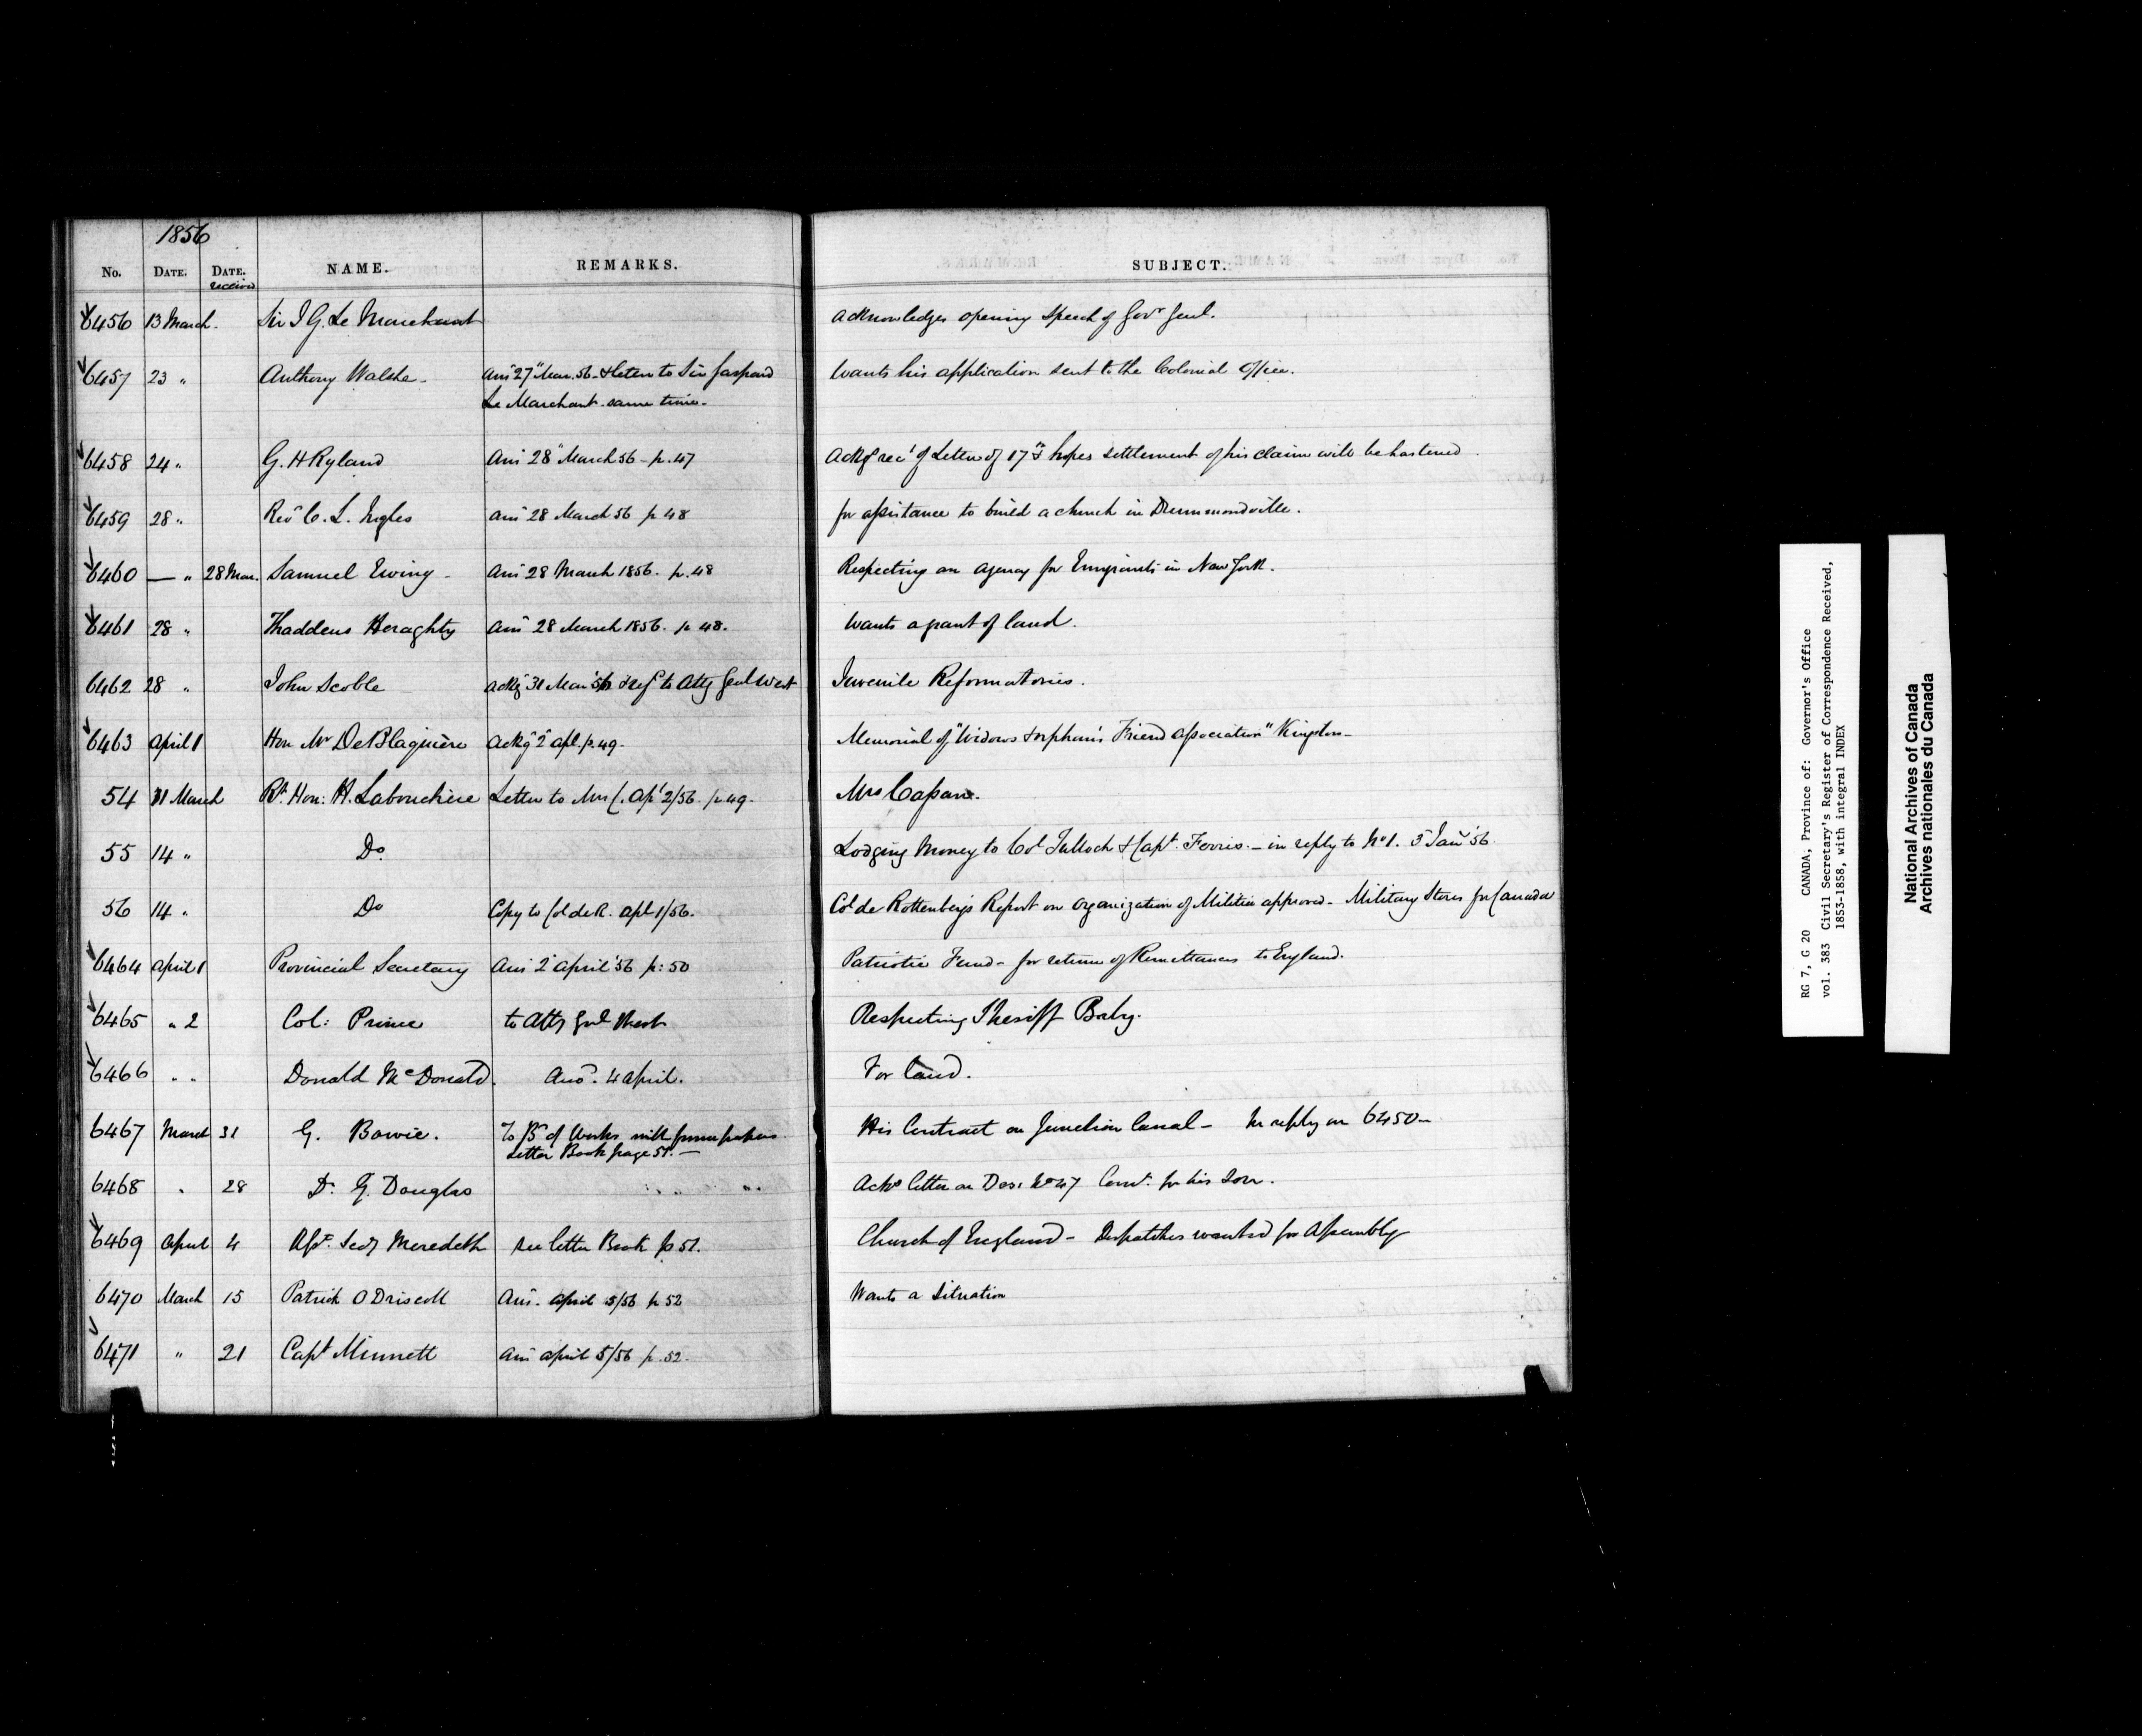 1856
No. DATE. DATE. received NAME. REMARKS. SUBJECT.
6456 13 March. Sir J G. Le Marchant Acknowledges opening Speech of Govr Genl.
6457 23 " Anthony Walshe - Ansd 27 Mar. 56 - & letter to Sir Gaspard Wants his application sent to the Colonial Office.
Le Marchant same time.
6458 24 " G. H Ryland Ansd 28 March 56 - p. 47 Ackg rect of Letter of 17th & hopes settlement of his claim will be hastened
6459 28 " Revd C. L. Ingles Ansd 28 March 56 p 48 for assistance to build a church in Drummondville.
6460 — " 28 Mar. Samuel Ewing - Ansd 28 March 1856. p. 48 Respecting an agency for Emigrants in New York.
6461 28 " Thaddeus Heraghty Ansd 28 March 1856. p 48. Wants a grant of land.
6462 28 " John Scoble Ackg 31 Mar 56 & refd to Atty Genl West Juvenile Reformatories.
6463 April 1 Hon Mr DeBlaquière Ackg 2 Apl. p. 49. Memorial of "Widows & orphan's Friend Association" Kingston -
54 31 March Rt Hon: H. Labouchere Letter to Mrs C. Apl 2/56. p 49. Mrs
55 14 " Do Lodging Money to Col Tulloch & Capt. Ferris. - in reply to No 1. 3 Jany 56.
56 14 " Do Copy to Col de R. Apl 1/56. Col de Rottenberg's Report on Organization of Militia approved - Military Stores for Canada
6464 April 1 Provincial Secretary Ansd 2 April '56 p: 50 Patriotic Fund - for return of Remittances to England.
6465 " 2 Col: Prince to Atty Genl West Respecting Sheriff Baby.
6466 " " Donald McDonald. Ansd. 4 April. For Land.
6467 March 31 G. Bowie. To Bd of Works with former papers His Contract on Junction Canal - In reply on 6450 -
Letter Book page 51. —
6468 " 28 Dr G. Douglas Ackg letter on No 47 for his Son.
6469 April 4 Asst. Secy Meredith see letter Book p 51. Church of England - Despatches wanted for Assembly
6470 March 15 Patrick O Driscoll Ansd. April 5/56 p 52 Wants a Situation
6471 " 21 Capt Minnett Ansd April 5/56 p. 52.
RG 7, G 20 CANADA, Province of: Governor's Office
vol. 383 Civil Secretary's Register of Correspondence Received,
1853-1858, with integral INDEX
National Archives of Canada
Archives nationales du Canada